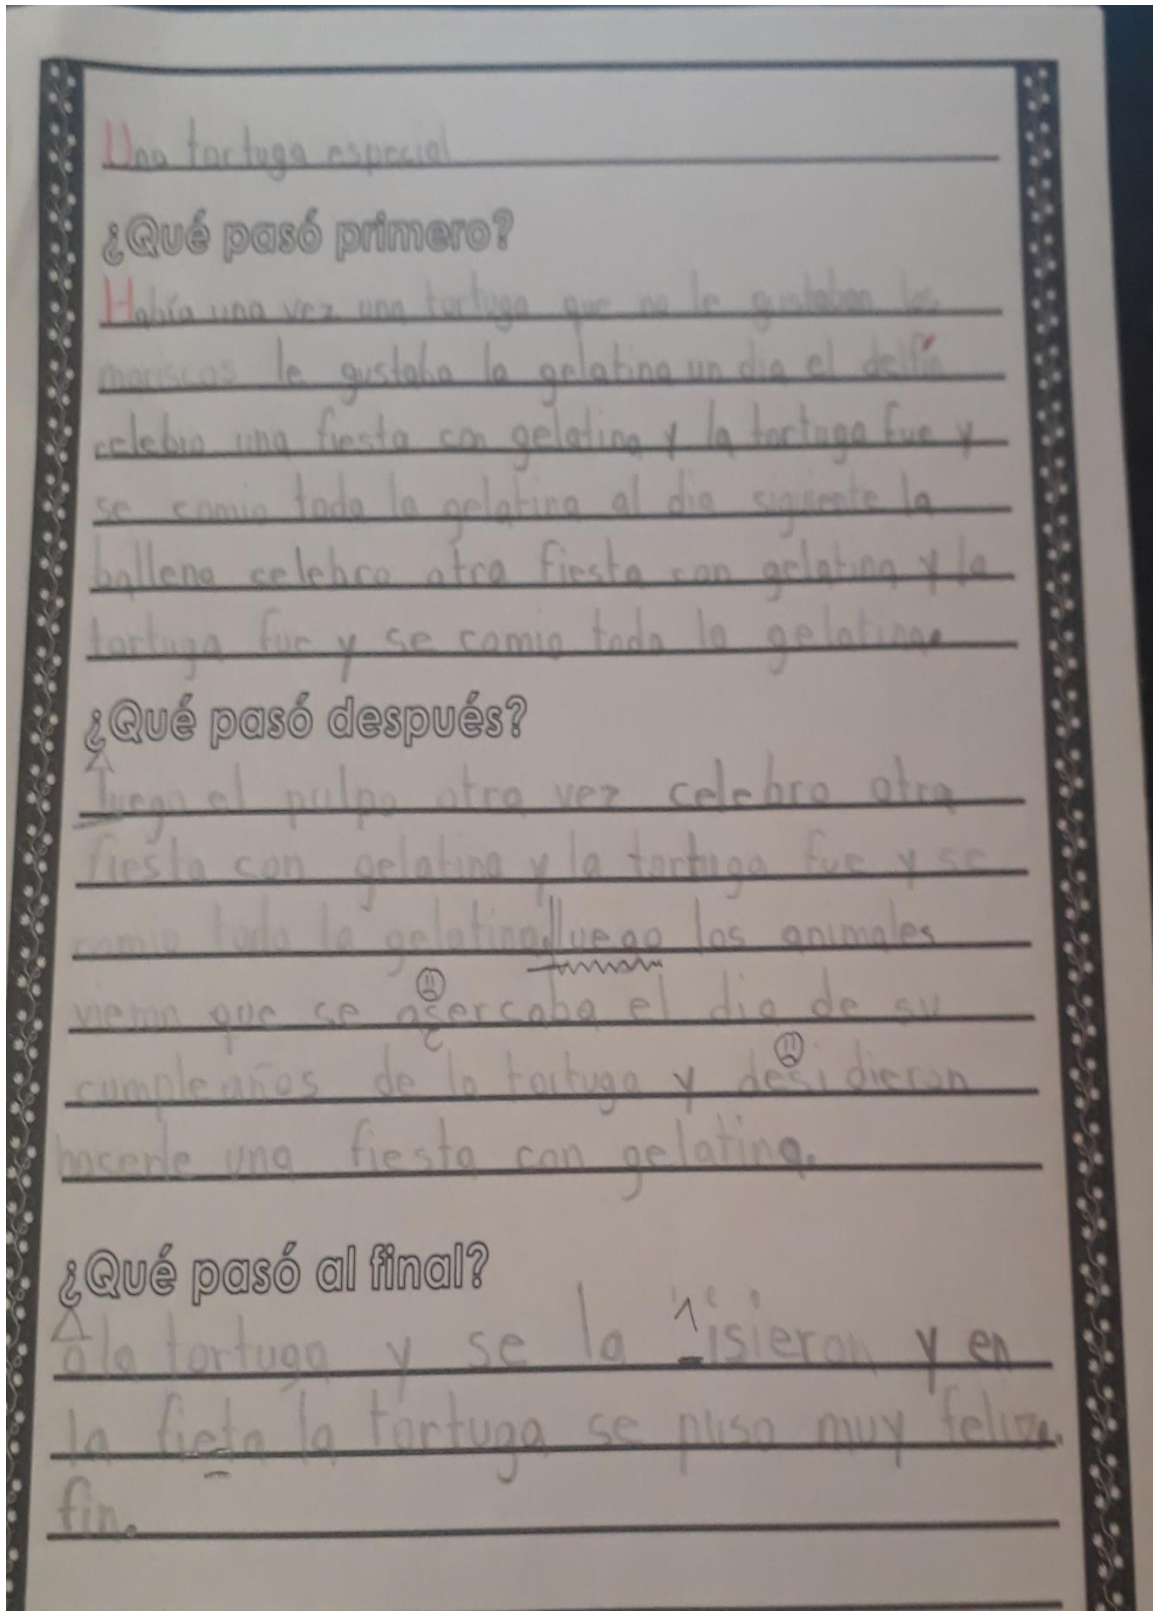 Una tortuga especial
¿Qué pasó primero?
Había una vez una tortuga que no le gustaban los
mariscos le gustaba la gelatina un dia el delfín
celebro una fiesta con gelatina y la tortuga fue y
se comio toda la gelatina al dia siguiente la
ballena celebro otra fiesta con gelatina y la
tortuga fue y se comio toda la gelatina.
¿Qué pasó después?
luego el pulpo otra vez celebro otra
fiesta con gelatina y la tortuga fue y se
comio toda la gelatina luego los animales
vieron que se asercaba el dia de su
cumpleaños de la tortuga y desidieron
hacerle una fiesta con gelatina.
¿Qué pasó al final?
a la tortuga y se la isieron y en
la fieta la tortuga se puso muy feliz.
fin.